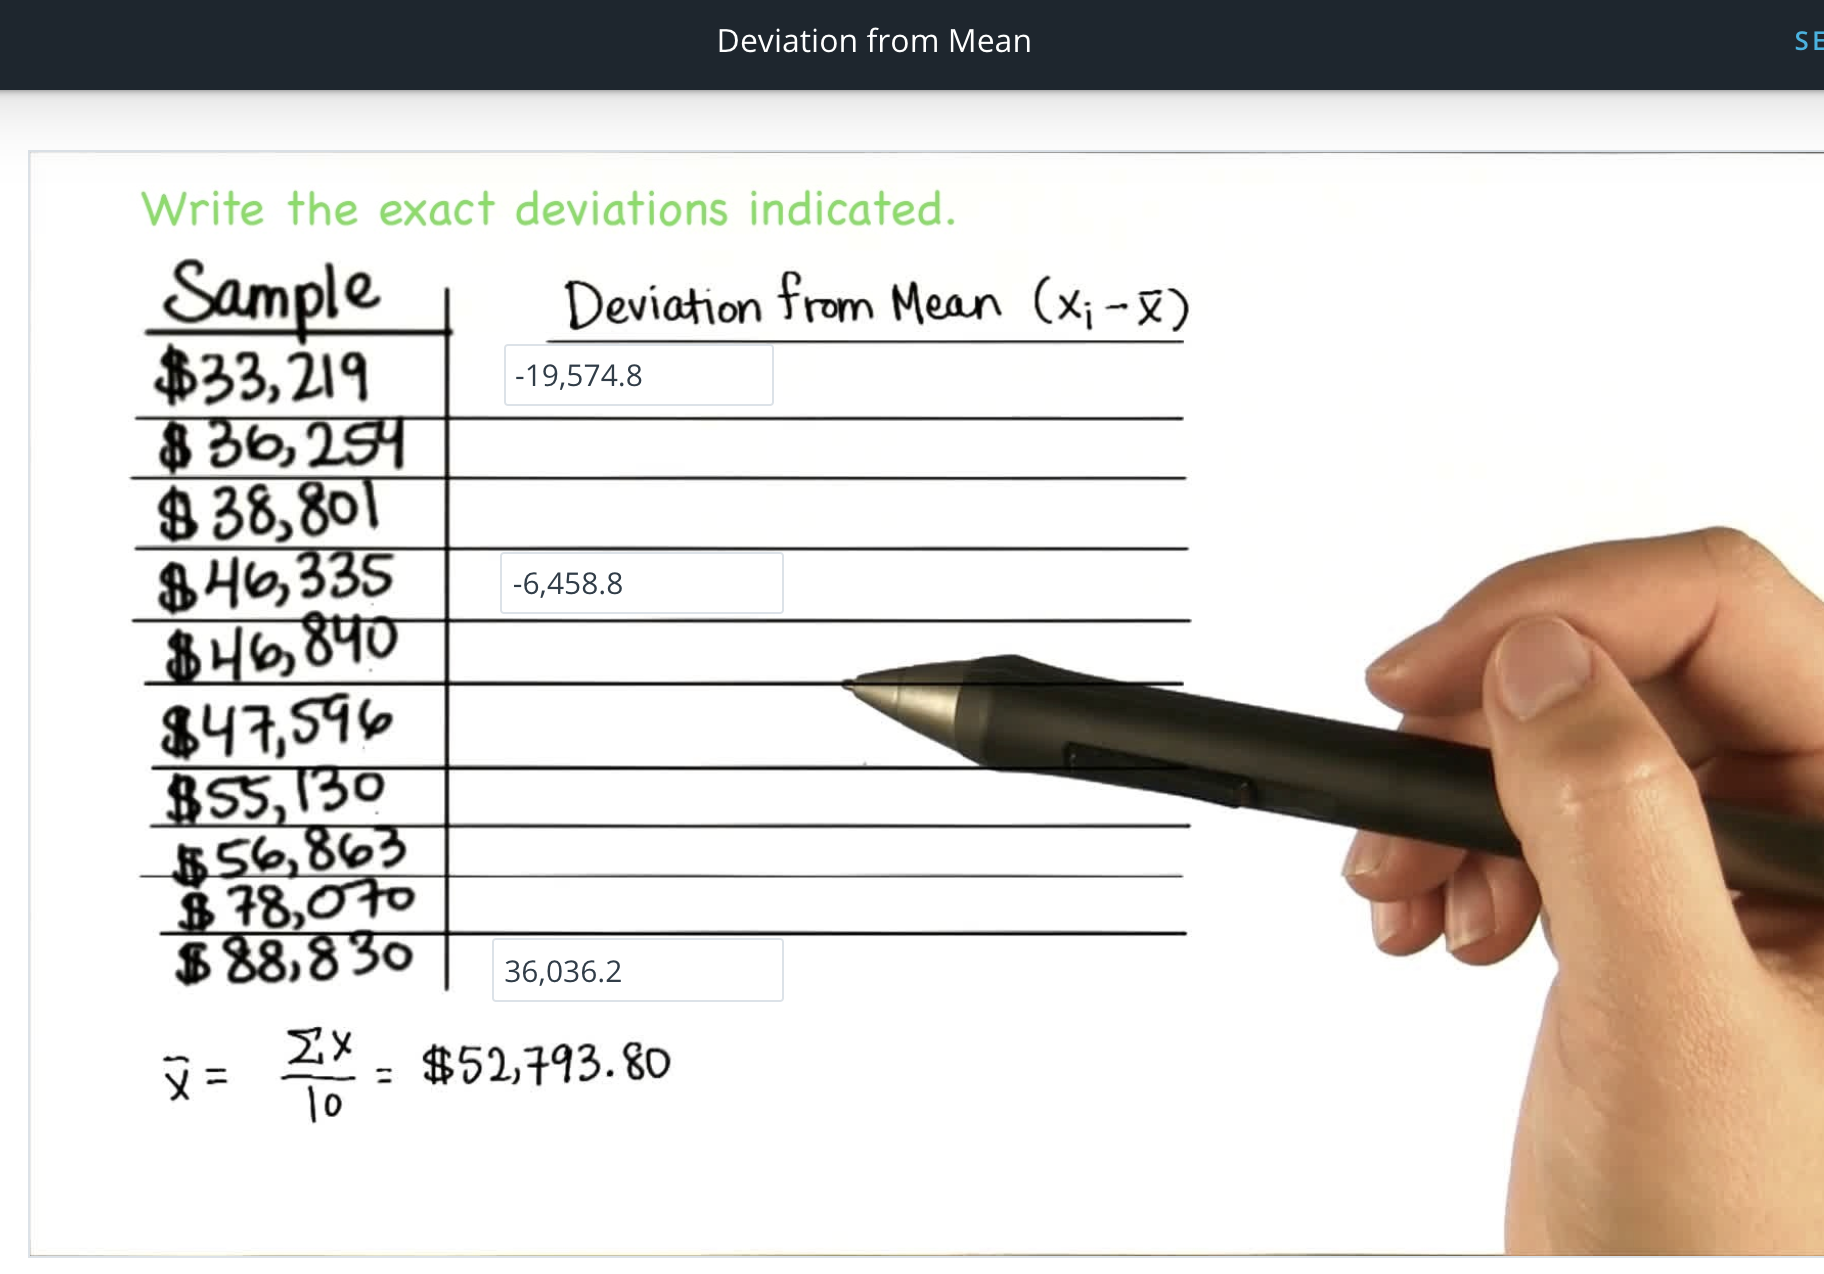 Deviation from Mean
SE
Write the exact deviations indicated.
Sample Deviation from Mean (xᵢ - x̄)
$33,219 -19,574.8
$36,254
$38,801
$46,335 -6,458.8
$46,840
$47,596
$55,130
$56,863
$78,070
$88,830 36,036.2
x̄ = Σx/10 = $52,793.80